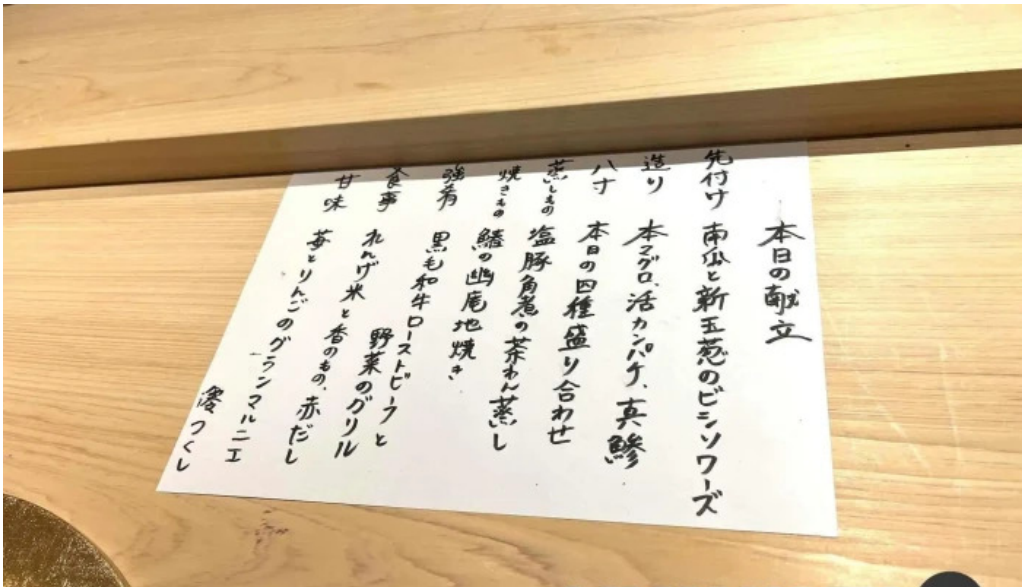 本日の献立
先付け 南瓜と新玉葱のビシソワーズ
造り 本マグロ、活カンパチ、真鯵
八寸 本日の四種盛り合わせ
蒸しもの 塩豚角煮の茶わん蒸し
焼きもの 鰆の幽庵地焼き
強肴 黒毛和牛ローストビーフと
野菜のグリル
食事 れんげ米と香のもの、赤だし
甘味 苺とりんごのグランマルニエ
つくし